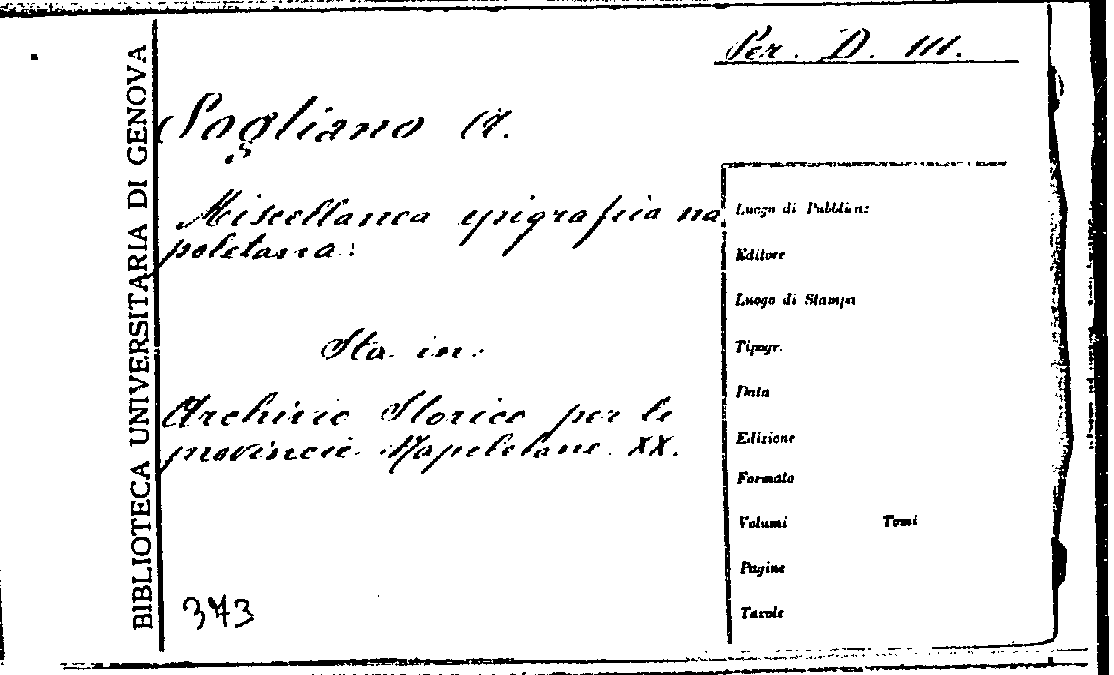 BIBLIOTECA UNIVERSITARIA DI GENOVA
Per. D. III.
Sogliano A.
Miscellanea epigrafica na
poletana:
Sta in:
Archivio Storico per le
provincie Napoletane. XX.
373
Luogo di Pubblicaz
Editore
Luogo di Stampa
Tipogr.
Data
Edizione
Formato
Volumi Tomi
Pagine
Tavole